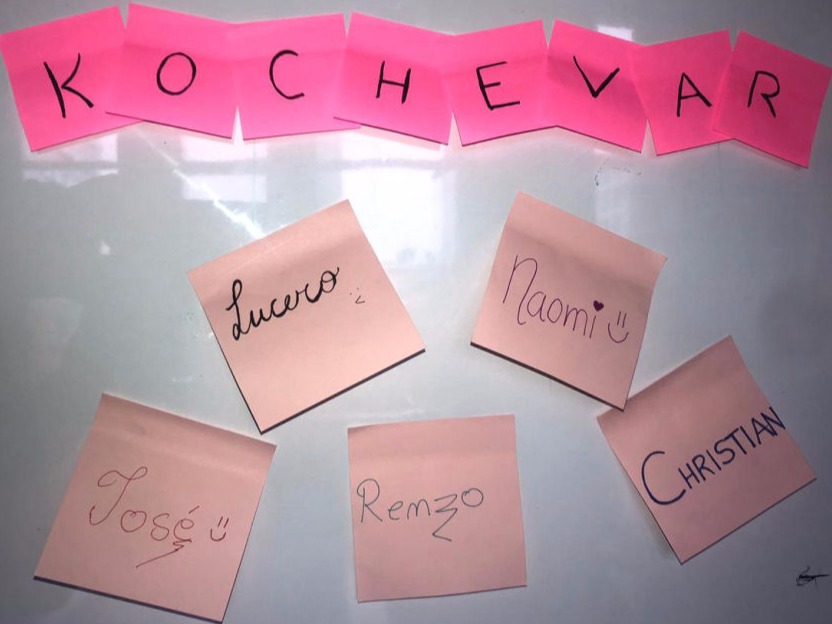 KOCHEVAR
Lucero
Naomi
José
Renzo
CHRISTIAN